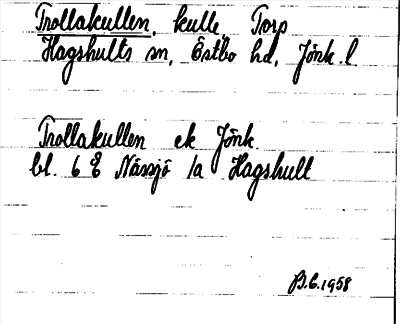 Trollakullen, kulle, Torp
Hagshults sn, Östbo hd, Jönk. l
Trollakullen ek Jönk.
bl. 6 E Nässjö 1a Hagshult
B.G. 1958